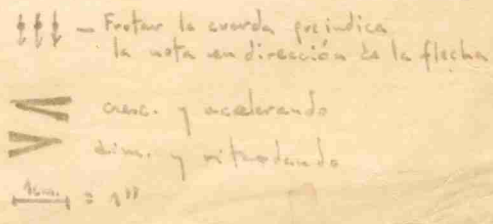 - Frotar la cuerda que indica
la nota en dirección de la flecha
cresc. y acelerando
dim. y ritardando
1cm. = 1"